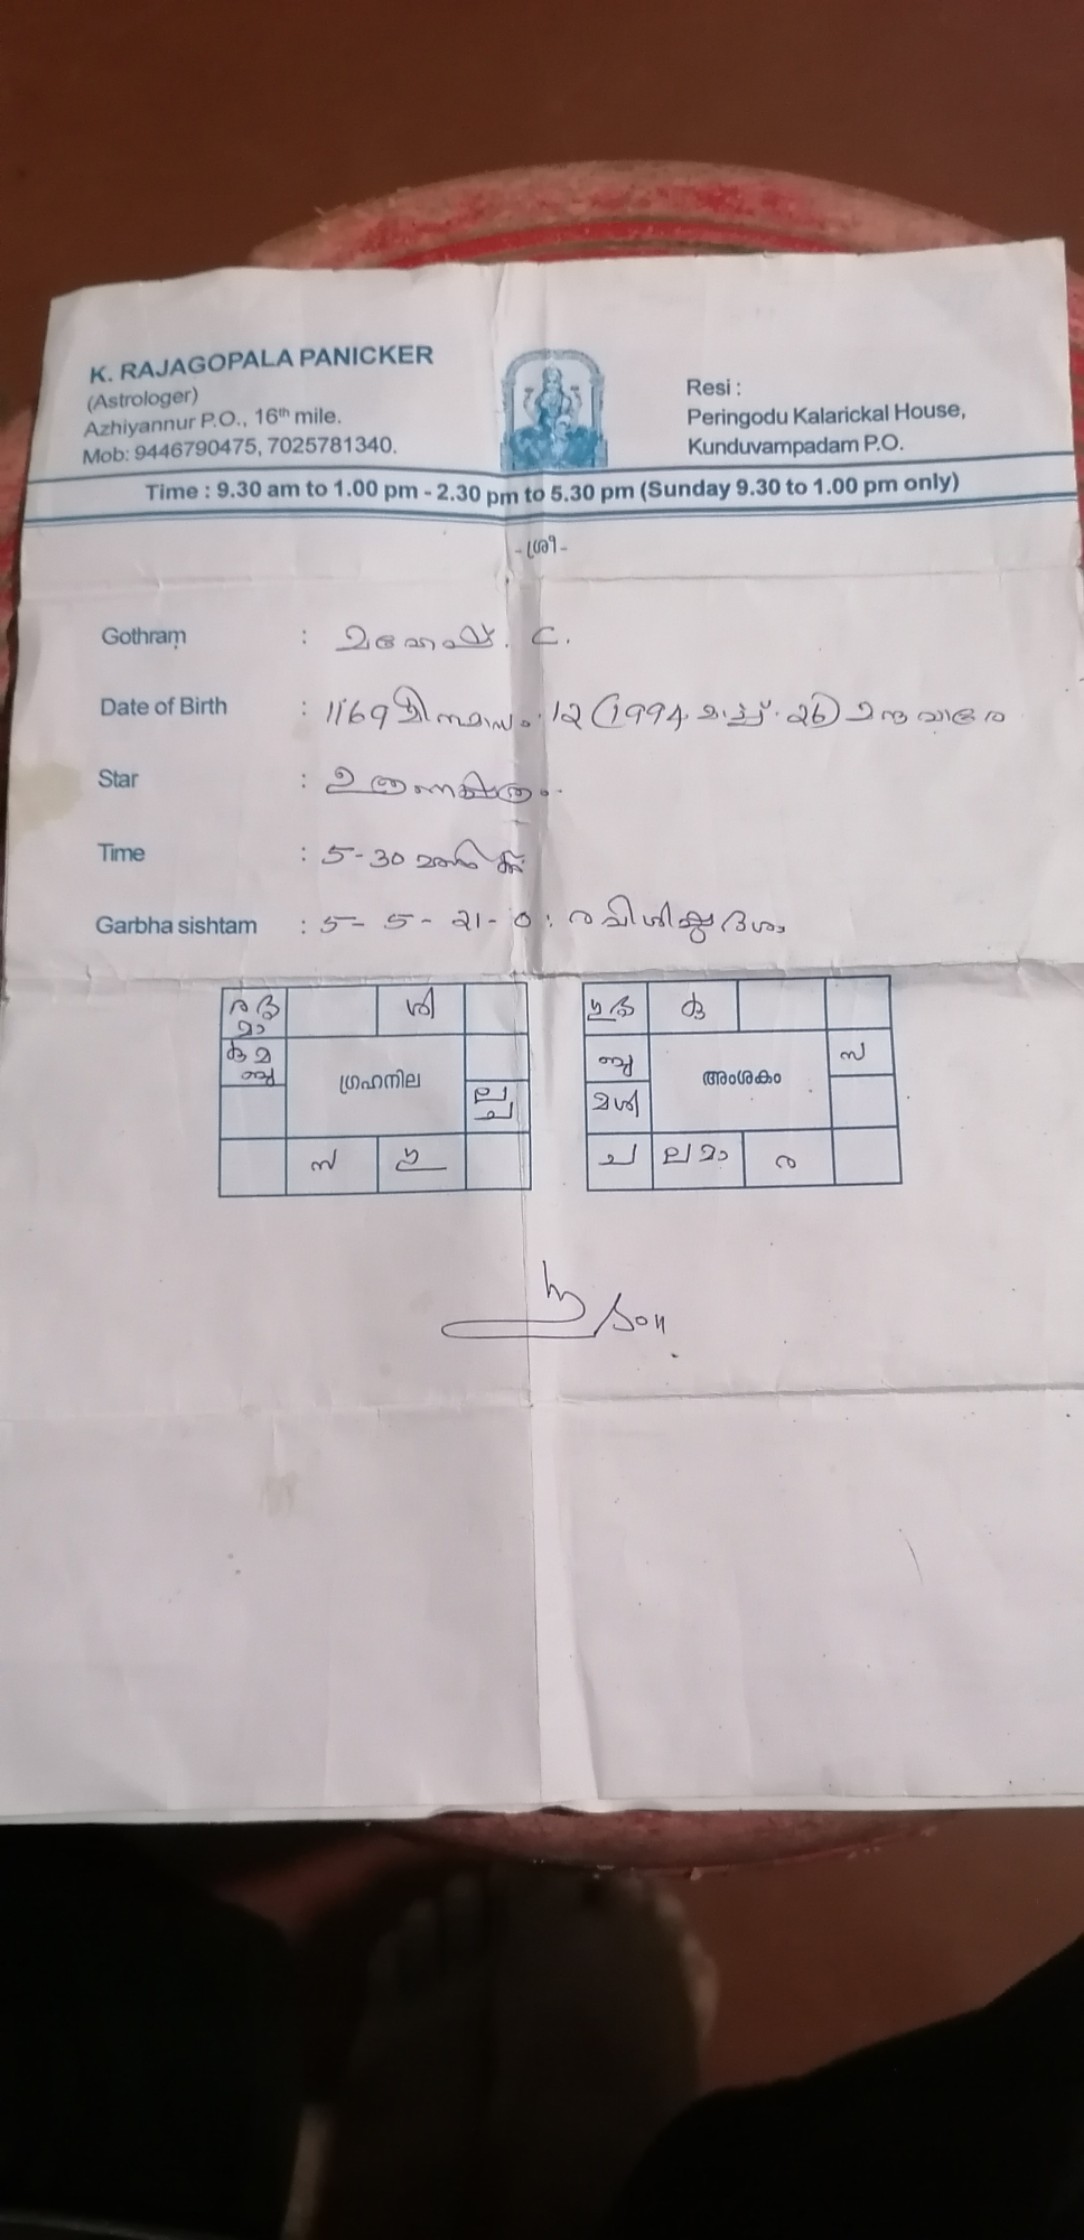 K. RAJAGOPALA PANICKER
(Astrologer)
Azhiyannur P.O., 16th mile.
Mob: 9446790475, 7025781340.
Resi :
Peringodu Kalarickal House,
Kunduvampadam P.O.
Time : 9.30 am to 1.00 pm - 2.30 pm to 5.30 pm (Sunday 9.30 to 1.00 pm only)
-ശ്രീ-
Gothram : മഹേഷ്. C.
Date of Birth : 1169 മീനമാസം 12 (1994 മാർച്ച് 26)
Star : ഉത്രനക്ഷത്രം.
Time : 5-30 മണിക്ക്
Garbha sishtam : 5- 5- 21- 0 : രവിശിഷ്ടദശാ
ശി
കു മ
ഗ്രഹനില
ല
ച
സ ഗു
കു
സ
അംശകം
മ ശി
ച ല മാ ര